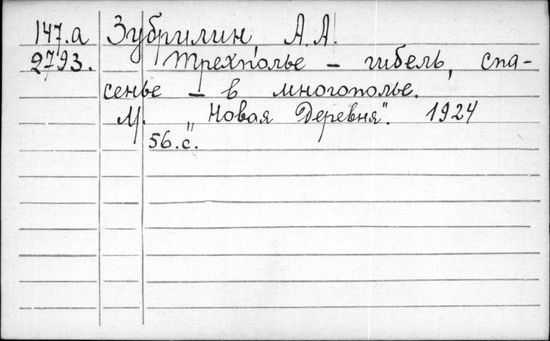 147.a Зубрилин, А.А.
2793. Трехполье – гибель, спа-
сенье – в многополье.
М. "Новая Деревня". 1924
56.с.